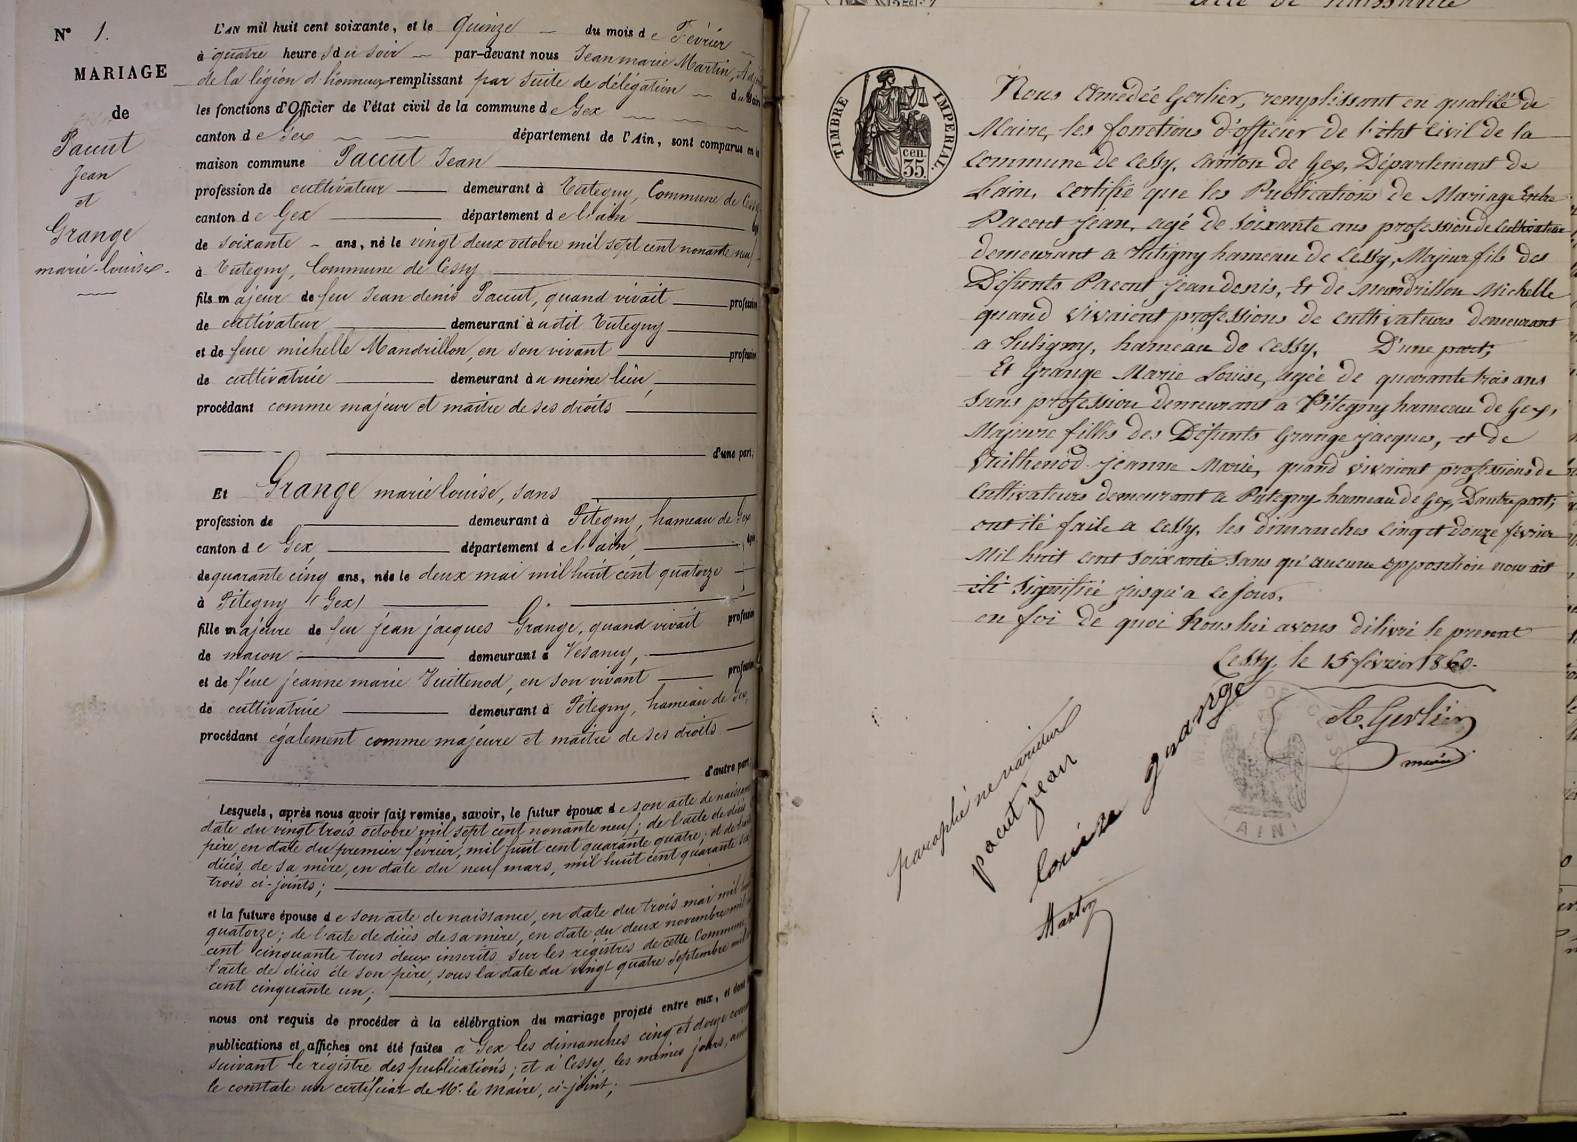 N° 1.
MARIAGE
de
Pacut
Jean
et
Grange
marie-louise.
L'AN mil huit cent soixante, et le Quinze du mois de Février
à quatre heures du soir par-devant nous Jean marie Martin,
de la légion d'honneur remplissant par suite de délégation du Maire
les fonctions d'Officier de l'état civil de la commune de Gex
canton de Gex département de l'Ain, sont comparus en la
maison commune Paccut Jean
profession de cultivateur demeurant à Tutegny, Commune de Cessy
canton de Gex département de l'ain
de soixante ans, né le vingt deux octobre mil sept cent nonante neuf
à Tutegny, Commune de Cessy
fils majeur de feu Jean denis Pacut, quand vivait profession
de cultivateur demeurant à udit Tutegny
et de feue michelle Mandrillon, en son vivant profession
de cultivatrice demeurant à u même lieu,
procédant comme majeur et maître de ses droits
d'une part,
Et Grange marie louise, sans
profession de demeurant à Pitegny, hameau de Gex
canton de Gex, département de l'ain,
de quarante cinq ans, née le deux mai mil huit cent quatorze
à Pitegny (Gex)
fille majeure de feu jean jacques Grange, quand vivait profession
de maçon demeurant à Vesancy,
et de feue jeanne marie Vuittenod, en son vivant profession
de cultivatrice demeurant à Pitegny, hameau de Gex,
procédant également comme majeure et maître de ses droits
d'autre part
Lesquels, après nous avoir fait remise, savoir, le futur époux de son acte de naissance
date du vingt trois octobre mil sept cent nonante neuf; de l'acte de décès
père, en date du premier février, mil huit cent quarante quatre; et de
décès de sa mère, en date du neuf mars, mil huit cent quarante
trois ci-joints;
et la future épouse de son acte de naissance, en date du trois mai mil
quatorze; de l'acte de décès de sa mère, en date du deux novembre mil
cent cinquante tous deux inscrits sur les régistres de cette Commune
l'acte de décès de son père, sous la date du vingt quatre septembre mil
cent cinquante un;
nous ont requis de procéder à la célébration du mariage projeté entre eux, et dont
publications et affiches ont été faites à Gex les dimanches cinq et douze courant
suivant le régistre des publications; et à Cessy, les mêmes jours,
le constate un certificat de Mr. le Maire, ci-joint;
TIMBRE IMPERIAL.
cen.
35.
Nous Amédée Gerlier, remplissant en qualité de
Maire, les fonctions d'officier de l'état Civil de la
Commune de Cessy, Canton de Gex, Département de
L'ain, Certifie que les Publications de Mariage Entre
Paccut Jean, agé de Soixante ans profession de Cultivateur
demeurant a Tutigny hameau de Cessy, Majeur fils des
Défunts Paccut Jean denis, Et de Mandrillon Michelle
quand vivaient professions de cultivateurs demeurant
a Tutigny, hameau de Cessy. D'une part;
Et Grange Marie Louise, agée de quarante trois ans
Sans profession Demeurant a Pitegny hameau de Gex,
Majeure fillis des Défunts Grange jacques, et de
Vuithenod jeanne Marie, quand vivaient professions de
Cultivateurs demeurant a Pitegny hameau de Gex, D'autre part;
ont été faite a Cessy, les dimanches Cinq et douze février
Mil huit cent soixante Sans qu'aucune opposition nous ait
été Signifiée jusqu'a ce Jour.
en foi de quoi Nous lui avons délivré le present
Cessy, le 15 février 1860.
A. Gerlier
maire
AIN
paraphé ne varietur
pacut jean
louise grange
Martin